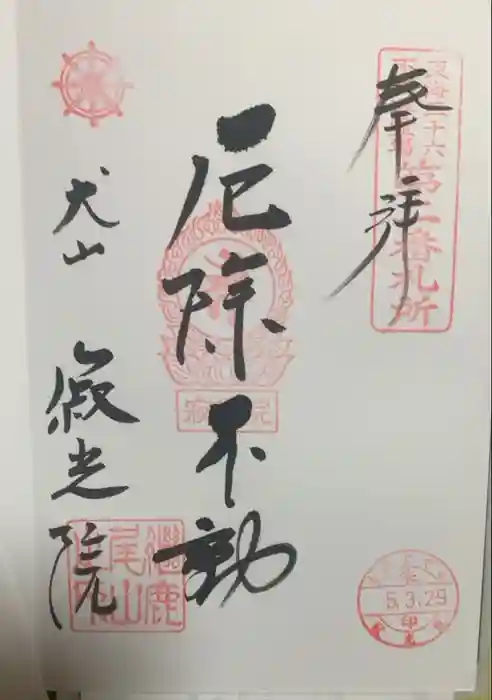 奉拝
東海三十六
不動尊霊場
第二番札所
厄除不動
寂光院
犬山
寂光院
継鹿
尾山
5.3.29
印